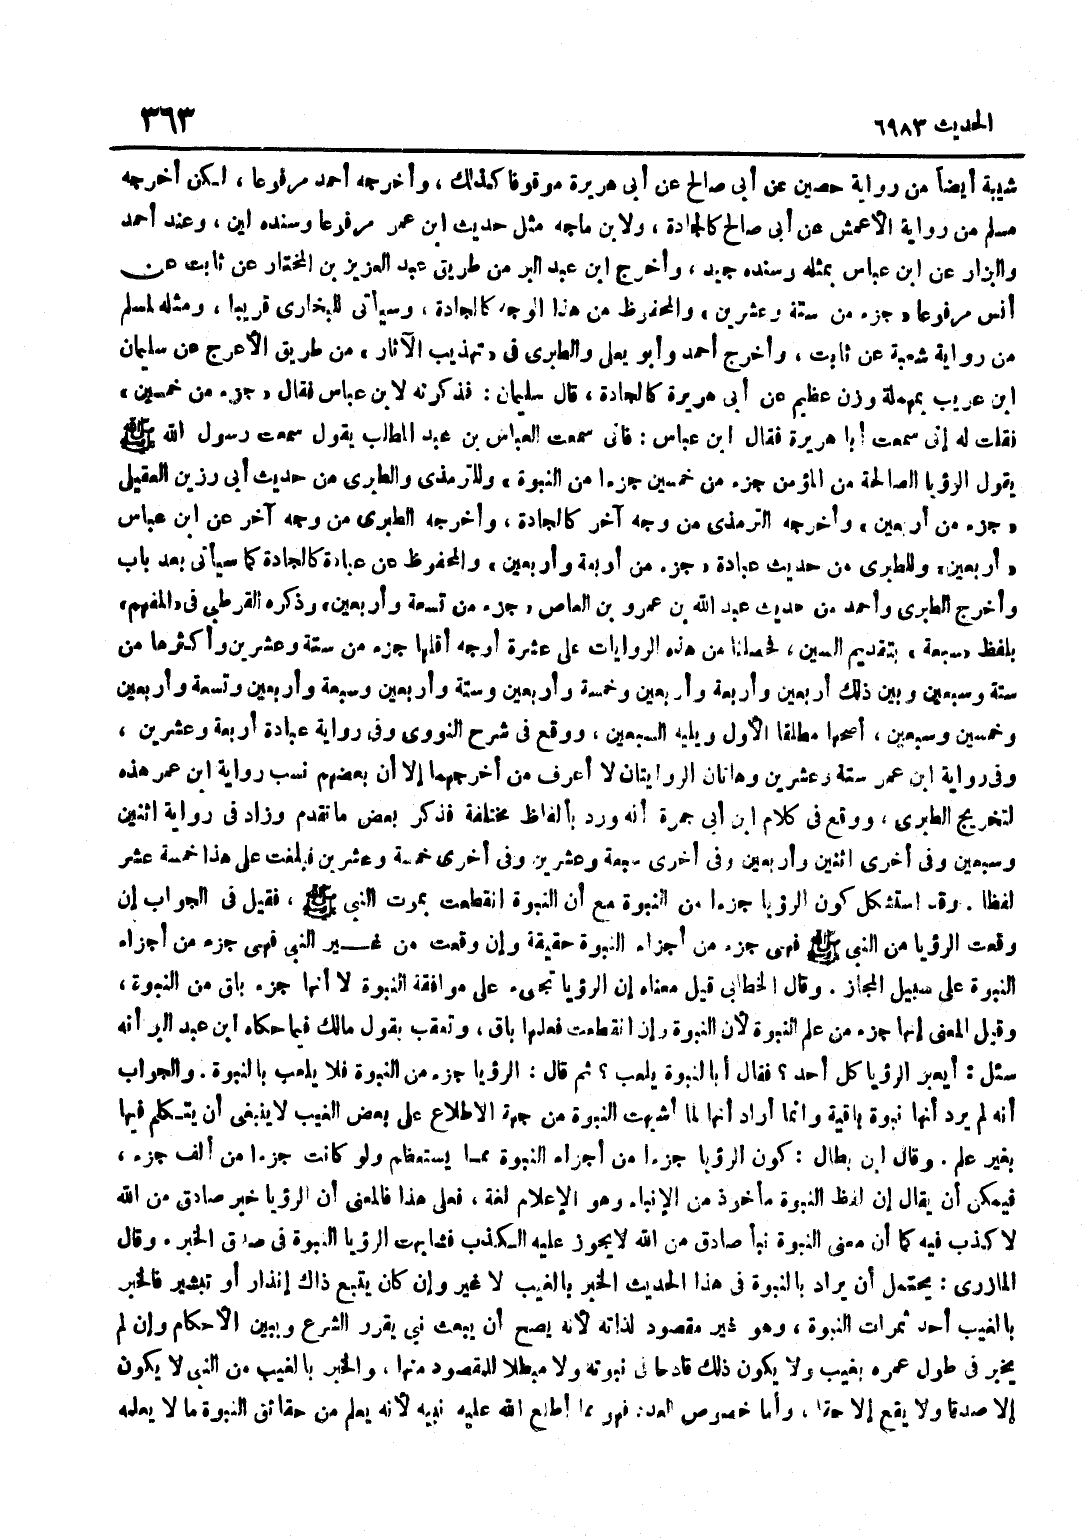 الحديث ٦٩٨٣
٣٦٣
شيبة أيضاً من رواية حصين عن أبى صالح عن أبى هريرة موقوفا كذلك ، وأخرجه أحمد مرفوعا ، لكن أخرجه
مسلم من رواية الأعمش عن أبى صالح كالجادة ، ولابن ماجه مثل حديث ابن عمر مرفوعا وسنده لين ، وعند أحمد
والبزار عن ابن عباس بمثله وسنده جيد ، وأخرج ابن عبد البر من طريق عبد العزيز بن المختار عن ثابت عن
أنس مرفوعا « جزء من ستة وعشرين » والمحفوظ من هذا الوجه كالجادة ، وسيأتى للبخارى قريبا ، ومثله لمسلم
من رواية شعبة عن ثابت ، وأخرج أحمد وأبو يعلى والطبرى فى « تهذيب الآثار » من طريق الأعرج عن سليمان
ابن عريب بمهملة وزن عظيم عن أبى هريرة كالجادة ، قال سليمان : فذكرته لابن عباس فقال « جزء من خمسين »
فقلت له إنى سمعت أبا هريرة فقال ابن عباس : فانى سمعت العباس بن عبد المطلب يقول سمعت رسول الله ﷺ
يقول الرؤيا الصالحة من المؤمن جزء من خمسين جزءا من النبوة » وللترمذى والطبرى من حديث أبى رزين العقيلى
« جزء من أربعين » وأخرجه الترمذى من وجه آخر كالجادة ، وأخرجه الطبرى من وجه آخر عن ابن عباس
« أربعين » وللطبرى من حديث عبادة « جزء من أربعة وأربعين » والمحفوظ عن عبادة كالجادة كما سيأتى بعد باب
وأخرج الطبرى وأحمد من حديث عبد الله بن عمرو بن العاص « جزء من تسعة وأربعين » وذكره القرطبى فى « المفهم »
بلفظ « سبعة » بتقديم السين ، فحصلنا من هذه الروايات على عشرة أوجه أقلها جزء من ستة وعشرين وأكثرها من
ستة وسبعين وبين ذلك أربعين وأربعة وأربعين وخمسة وأربعين وستة وأربعين وسبعة وأربعين وتسعة وأربعين
وخمسين وسبعين ، أصحها مطلقا الأول ويليه السبعين ، ووقع فى شرح النووى وفى رواية عبادة أربعة وعشرين ،
وفى رواية ابن عمر ستة وعشرين وهاتان الروايتان لا أعرف من أخرجهما إلا أن بعضهم نسب رواية ابن عمر هذه
لتخريج الطبرى ، ووقع فى كلام ابن أبى جمرة أنه ورد بألفاظ مختلفة فذكر بعض ما تقدم وزاد فى رواية اثنين
وسبعين وفى أخرى اثنين وأربعين وفى أخرى سبعة وعشرين وفى أخرى خمسة وعشرين فبلغت على هذا خمسة عشر
لفظا . وقد استشكل كون الرؤيا جزءا من النبوة مع أن النبوة انقطعت بموت النبى ﷺ ، فقيل فى الجواب إن
وقعت الرؤيا من النبى ﷺ فهى جزء من أجزاء النبوة حقيقة وإن وقعت من غير النبى فهى جزء من أجزاء
النبوة على سبيل المجاز . وقال الخطابى قيل معناه إن الرؤيا تجىء على موافقة النبوة لا أنها جزء باق من النبوة ،
وقيل المعنى إنها جزء من علم النبوة لأن النبوة وإن انقطعت فعلمها باق ، وتعقب بقول مالك فيما حكاه ابن عبد البر أنه
سئل : أيعبر الرؤيا كل أحد ؟ فقال أبالنبوة يلعب ؟ ثم قال : الرؤيا جزء من النبوة فلا يلعب بالنبوة . والجواب
أنه لم يرد أنها نبوة باقية وانما أراد أنها لما أشبهت النبوة من جهة الاطلاع على بعض الغيب لا ينبغى أن يتكلم فيها
بغير علم . وقال ابن بطال : كون الرؤيا جزءا من أجزاء النبوة مما يستعظم ولو كانت جزءا من ألف جزء ،
فيمكن أن يقال إن لفظ النبوة مأخوذ من الإنباء وهو الإعلام لغة ، فعلى هذا فالمعنى أن الرؤيا خبر صادق من الله
لا كذب فيه كما أن معنى النبوة نبأ صادق من الله لا يجوز عليه الكذب فشابهت الرؤيا النبوة فى صدق الخبر . وقال
المازرى : يحتمل أن يراد بالنبوة فى هذا الحديث الخبر بالغيب لا غير وإن كان يتبع ذاك إنذار أو تبشير فالخبر
بالغيب أحد ثمرات النبوة ، وهو غير مقصود لذاته لأنه يصح أن يبعث نبى يقرر الشرع ويبين الأحكام وإن لم
يخبر فى طول عمره بغيب ولا يكون ذلك قادحا فى نبوته ولا مبطلا للمقصود منها ، والخبر بالغيب من النبى لا يكون
إلا صدقا ولا يقع إلا حقا ، وأما خصوص العدد فهو مما أطلع الله عليه نبيه لأنه يعلم من حقائق النبوة ما لا يعلمه